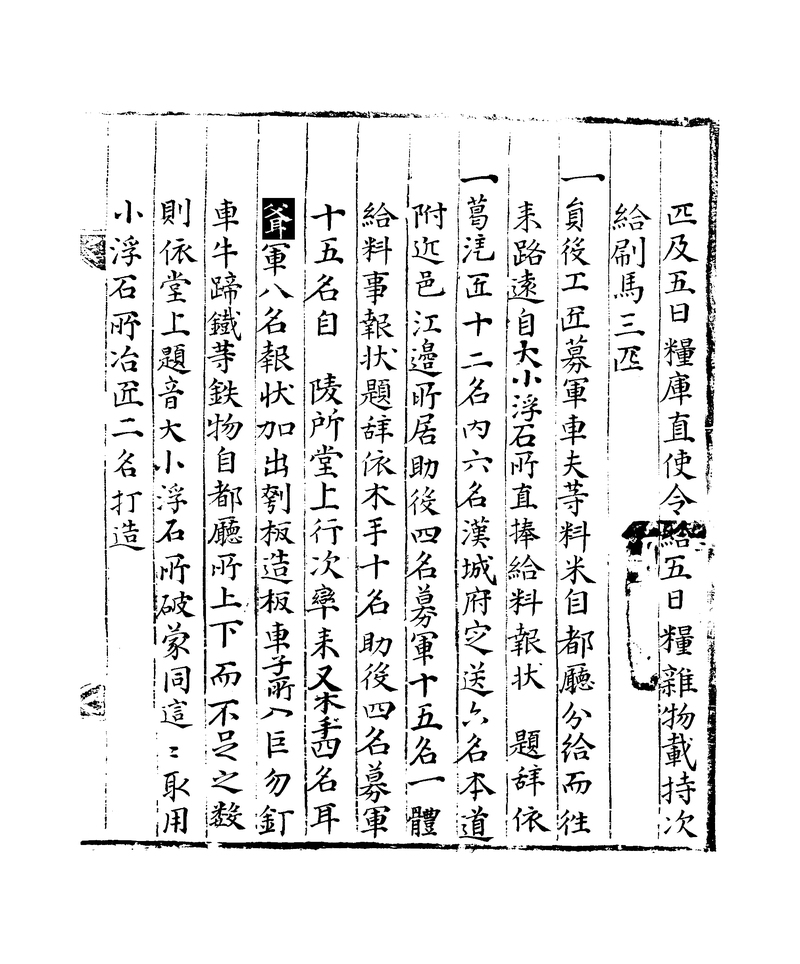 匹及五日糧庫直使令給五日糧雜物載持次
給刷馬三匹
一 貟役工匠募軍車夫䓁料米自都廳分給而徃
来路遠自大小浮石所直捧給料報状 題辞依
一 葛𮎰匠十二名內六名漢城府㝎送六名本道
附近邑江邊所居助役四名募軍十五名一體
給料事報状題辞依木手十名助役四名募軍
十五名自 陵所堂上行次率来又木手四名耳
軍八名報状加出剜板造板車子所入巨勿釘
車牛蹄鐵䓁鉄物自都廳所上下而不足之数
則依堂上題音大小浮石所破蒙同這〻取用
小浮石所冶匠二名打造